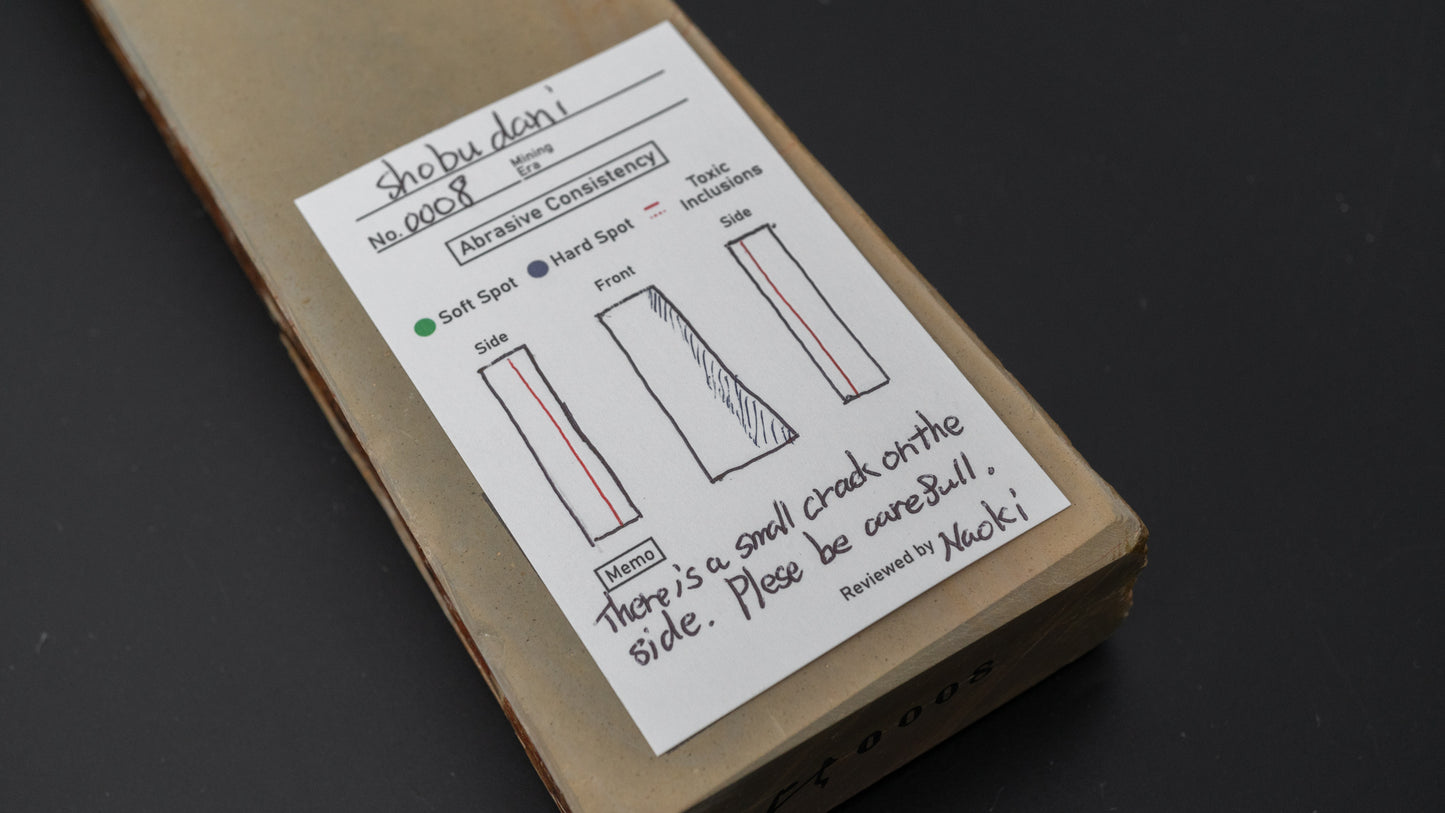 shobudani
No. 0008 Mining Era
Abrasive Consistency
Soft Spot Hard Spot Toxic Inclusions
Side Front Side
Memo
There is a small crack on the
side. Plese be carefull.
Reviewed by Naoki
0008